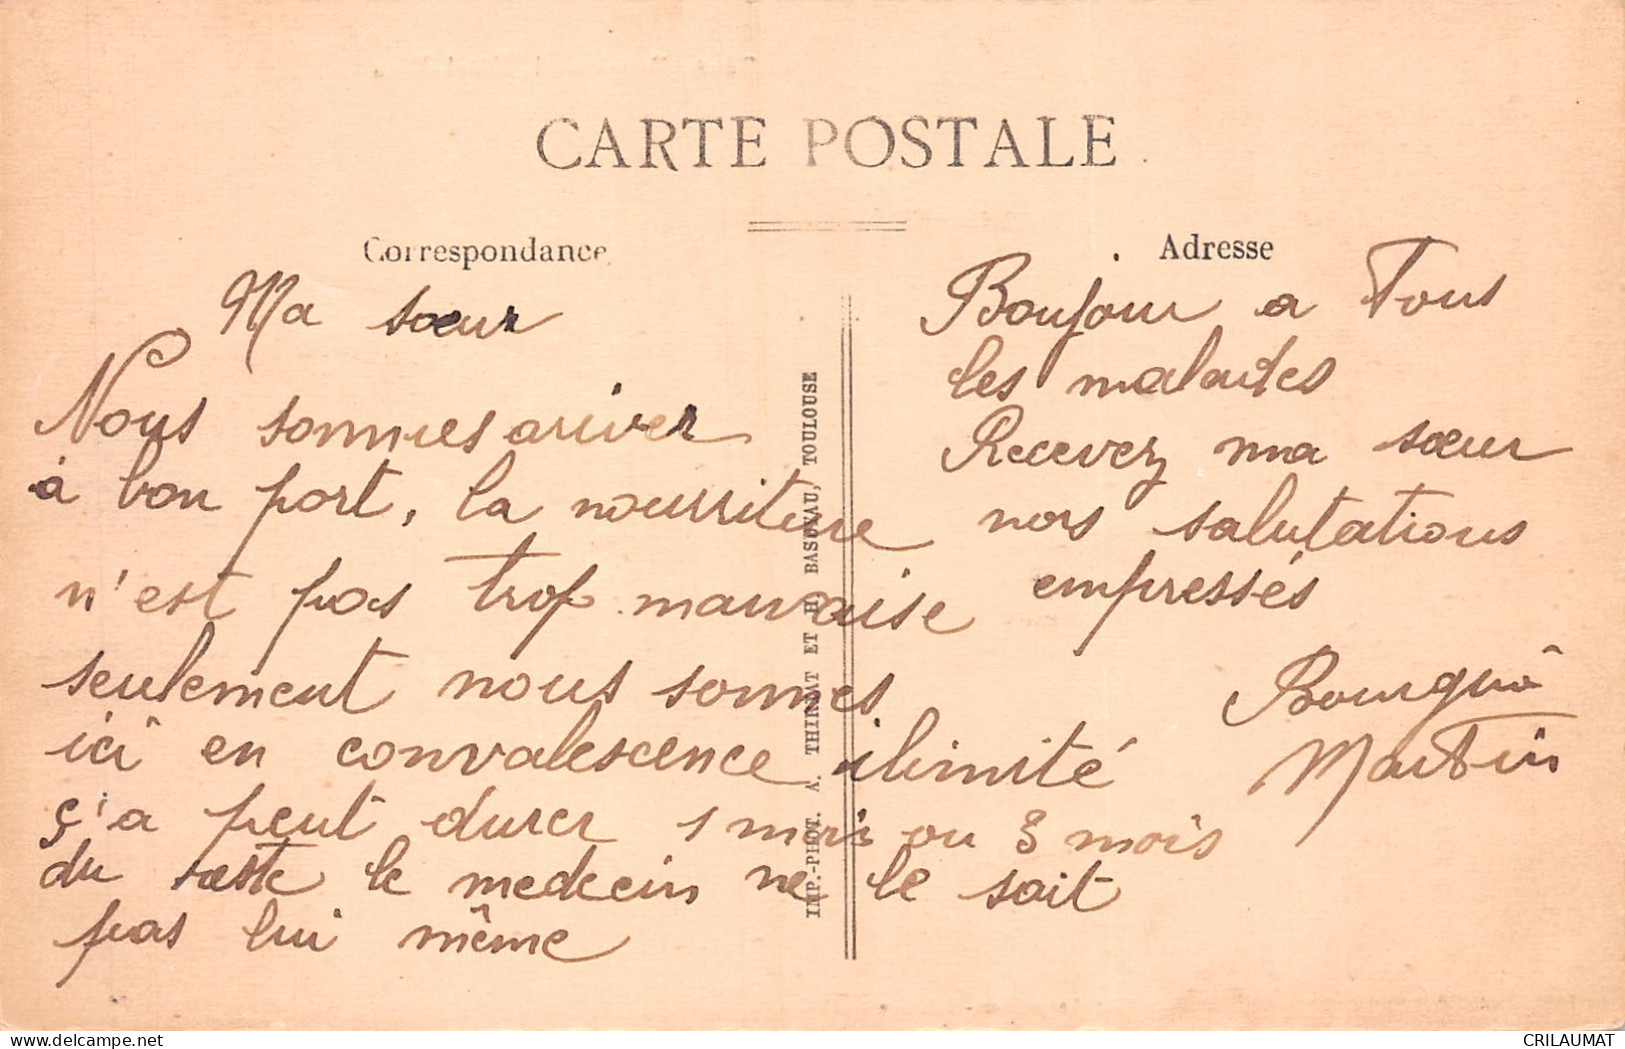 CARTE POSTALE
Correspondance
Ma sœur
Nous sommes ariver
à bon port, la nourriture
n'est pas trop mauvaise
seulement nous sommes
ici en convalescence ilimité
ç'a peut durer 1 mois ou 3 mois
du reste le medecin ne le sait
pas lui même
IMP.-PHOT. A. THIRIAT ET H. BASUYAU, TOULOUSE
Adresse
Boujour a Tous
les malades
Recevez ma sœur
nos salutations
empressés
Martin
delcampe.net
CRILAUMAT